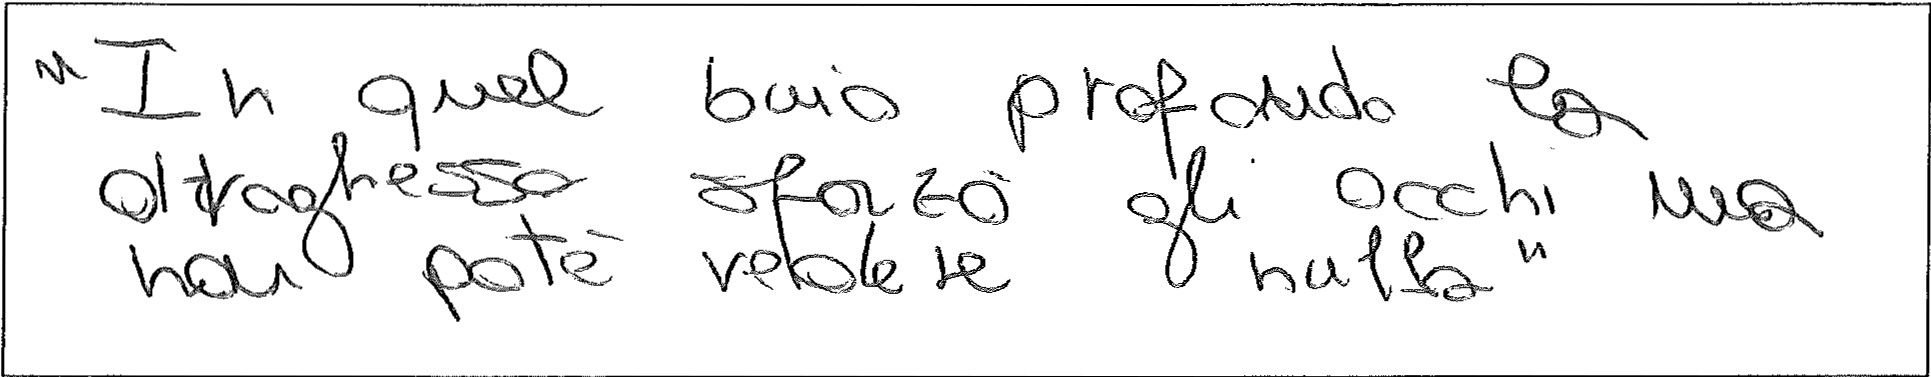 "In quel buio profondo la
draghessa sforzò gli occhi ma
non potè vedere nulla"